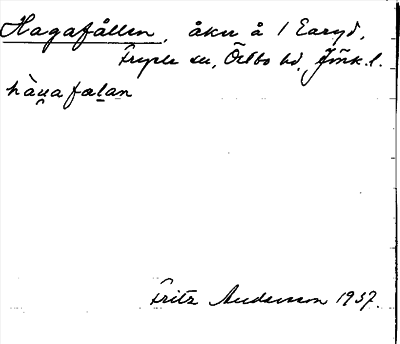 Hagafållen, åker å 1 Earyd,
Fryele sn, Östbo hd, Jönk. l.
hàu̯afaḷan
Fritz Andersson 1937.